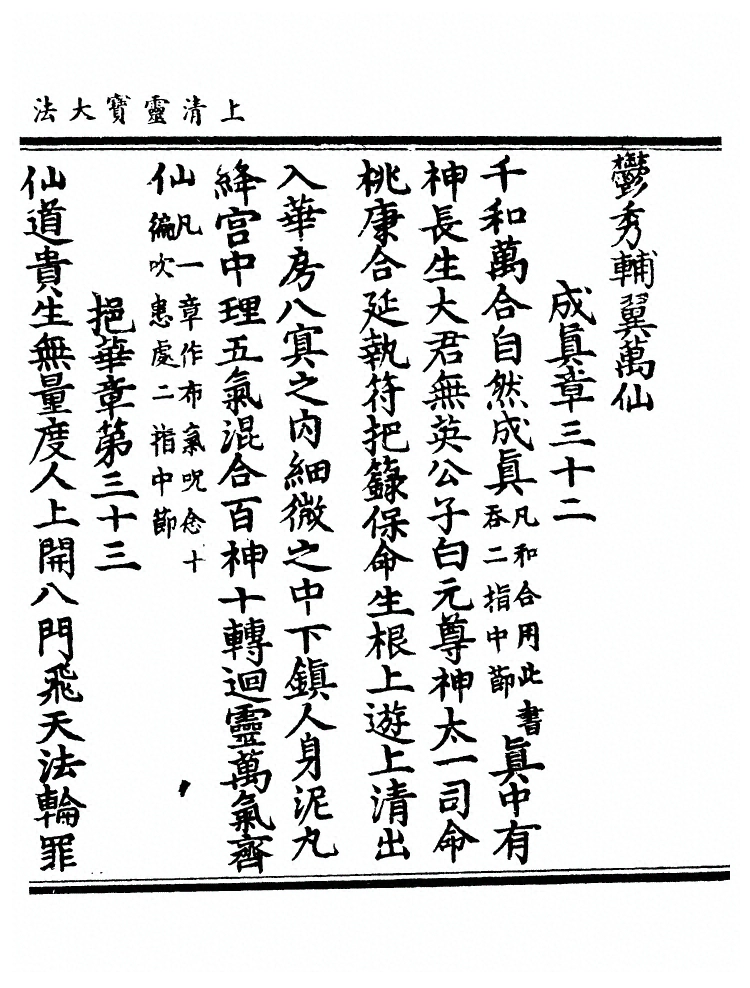 上清靈寶大法
鬱秀輔翼萬仙
成眞章三十二
千和萬合自然成眞凡和合用此書吞二指中節眞中有
神長生大君無英公子白元尊神太一司命
桃康合延執符把籙保命生根上遊上清出
入華房八㝠之内細微之中下鎮人身泥丸
絳宫中理五氣混合百神十轉迴靈萬氣齊
仙凡一章作布氣呪念十編吹患處二指中節
挹華章第三十三
仙道貴生無量度人上開八門飛天法輪罪